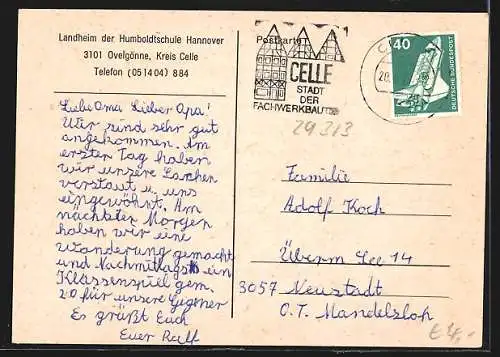 Landheim der Humboldtschule Hannover
3101 Ovelgönne, Kreis Celle
Telefon (05 14 04) 8 84
Postkarte
CELLE
STADT
DER
FACHWERKBAUTEN
40
DEUTSCHE BUNDESPOST
29313
Liebe Oma, Lieber Opa!
Wir sind sehr gut
angekommen. Am
ersten Tag haben
wir unsere Sachen
verstaut u. uns
eingewöhnt. Am
nächsten Morgen
haben wir eine
Wanderung gemacht
und Nachmittags ein
Klassenspiel gem.
2:0 für unsere Gegner
Es grüßt Euch
Euer Ralf
Familie
Adolf Koch
Überm See 14
3057 Neustadt
O.T. Mandelsloh